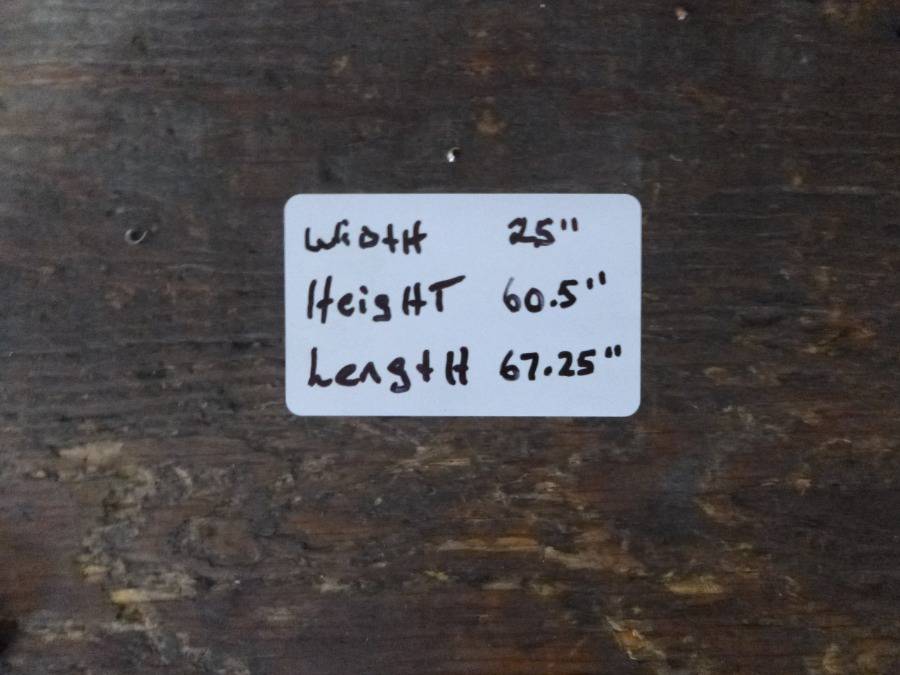 WidtH 25"
HeigHT 60.5"
LengtH 67.25"